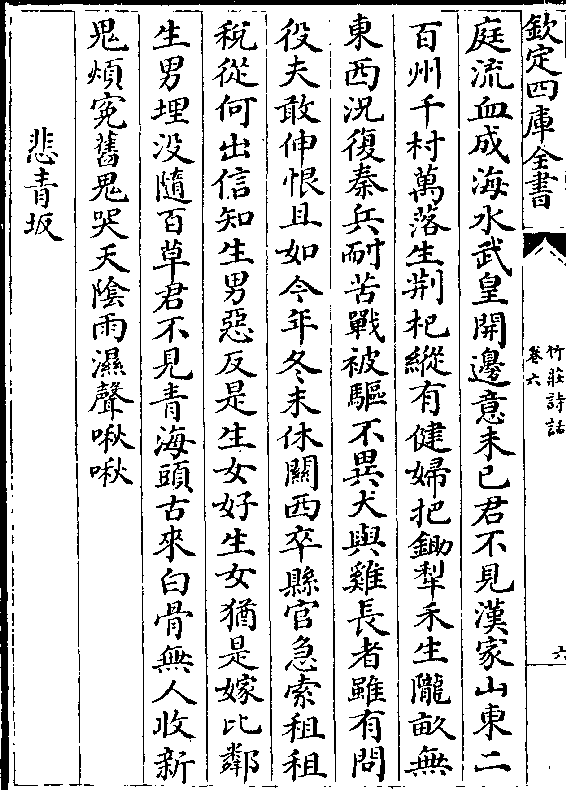 欽定四庫全書
竹莊詩話
卷六
六
庭流血成海水武皇開邊意未已君不見漢家山東二
百州千村萬落生荆杞縱有健婦把鋤犁禾生隴畝無
東西況復秦兵耐苦戰被驅不異犬與雞長者雖有問
役夫敢伸恨且如今年冬未休關西卒縣官急索租租
稅從何出信知生男惡反是生女好生女猶是嫁比鄰
生男埋没隨百草君不見青海頭古來白骨無人收新
鬼煩寃舊鬼哭天陰雨濕聲啾啾
悲青坂